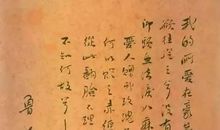 我的所愛在豪
欲往從之兮沒有
仰頭無法淚如麻
愛人贈我玫瑰
何以贈之赤
從此翻臉不理
不知何故兮
魯